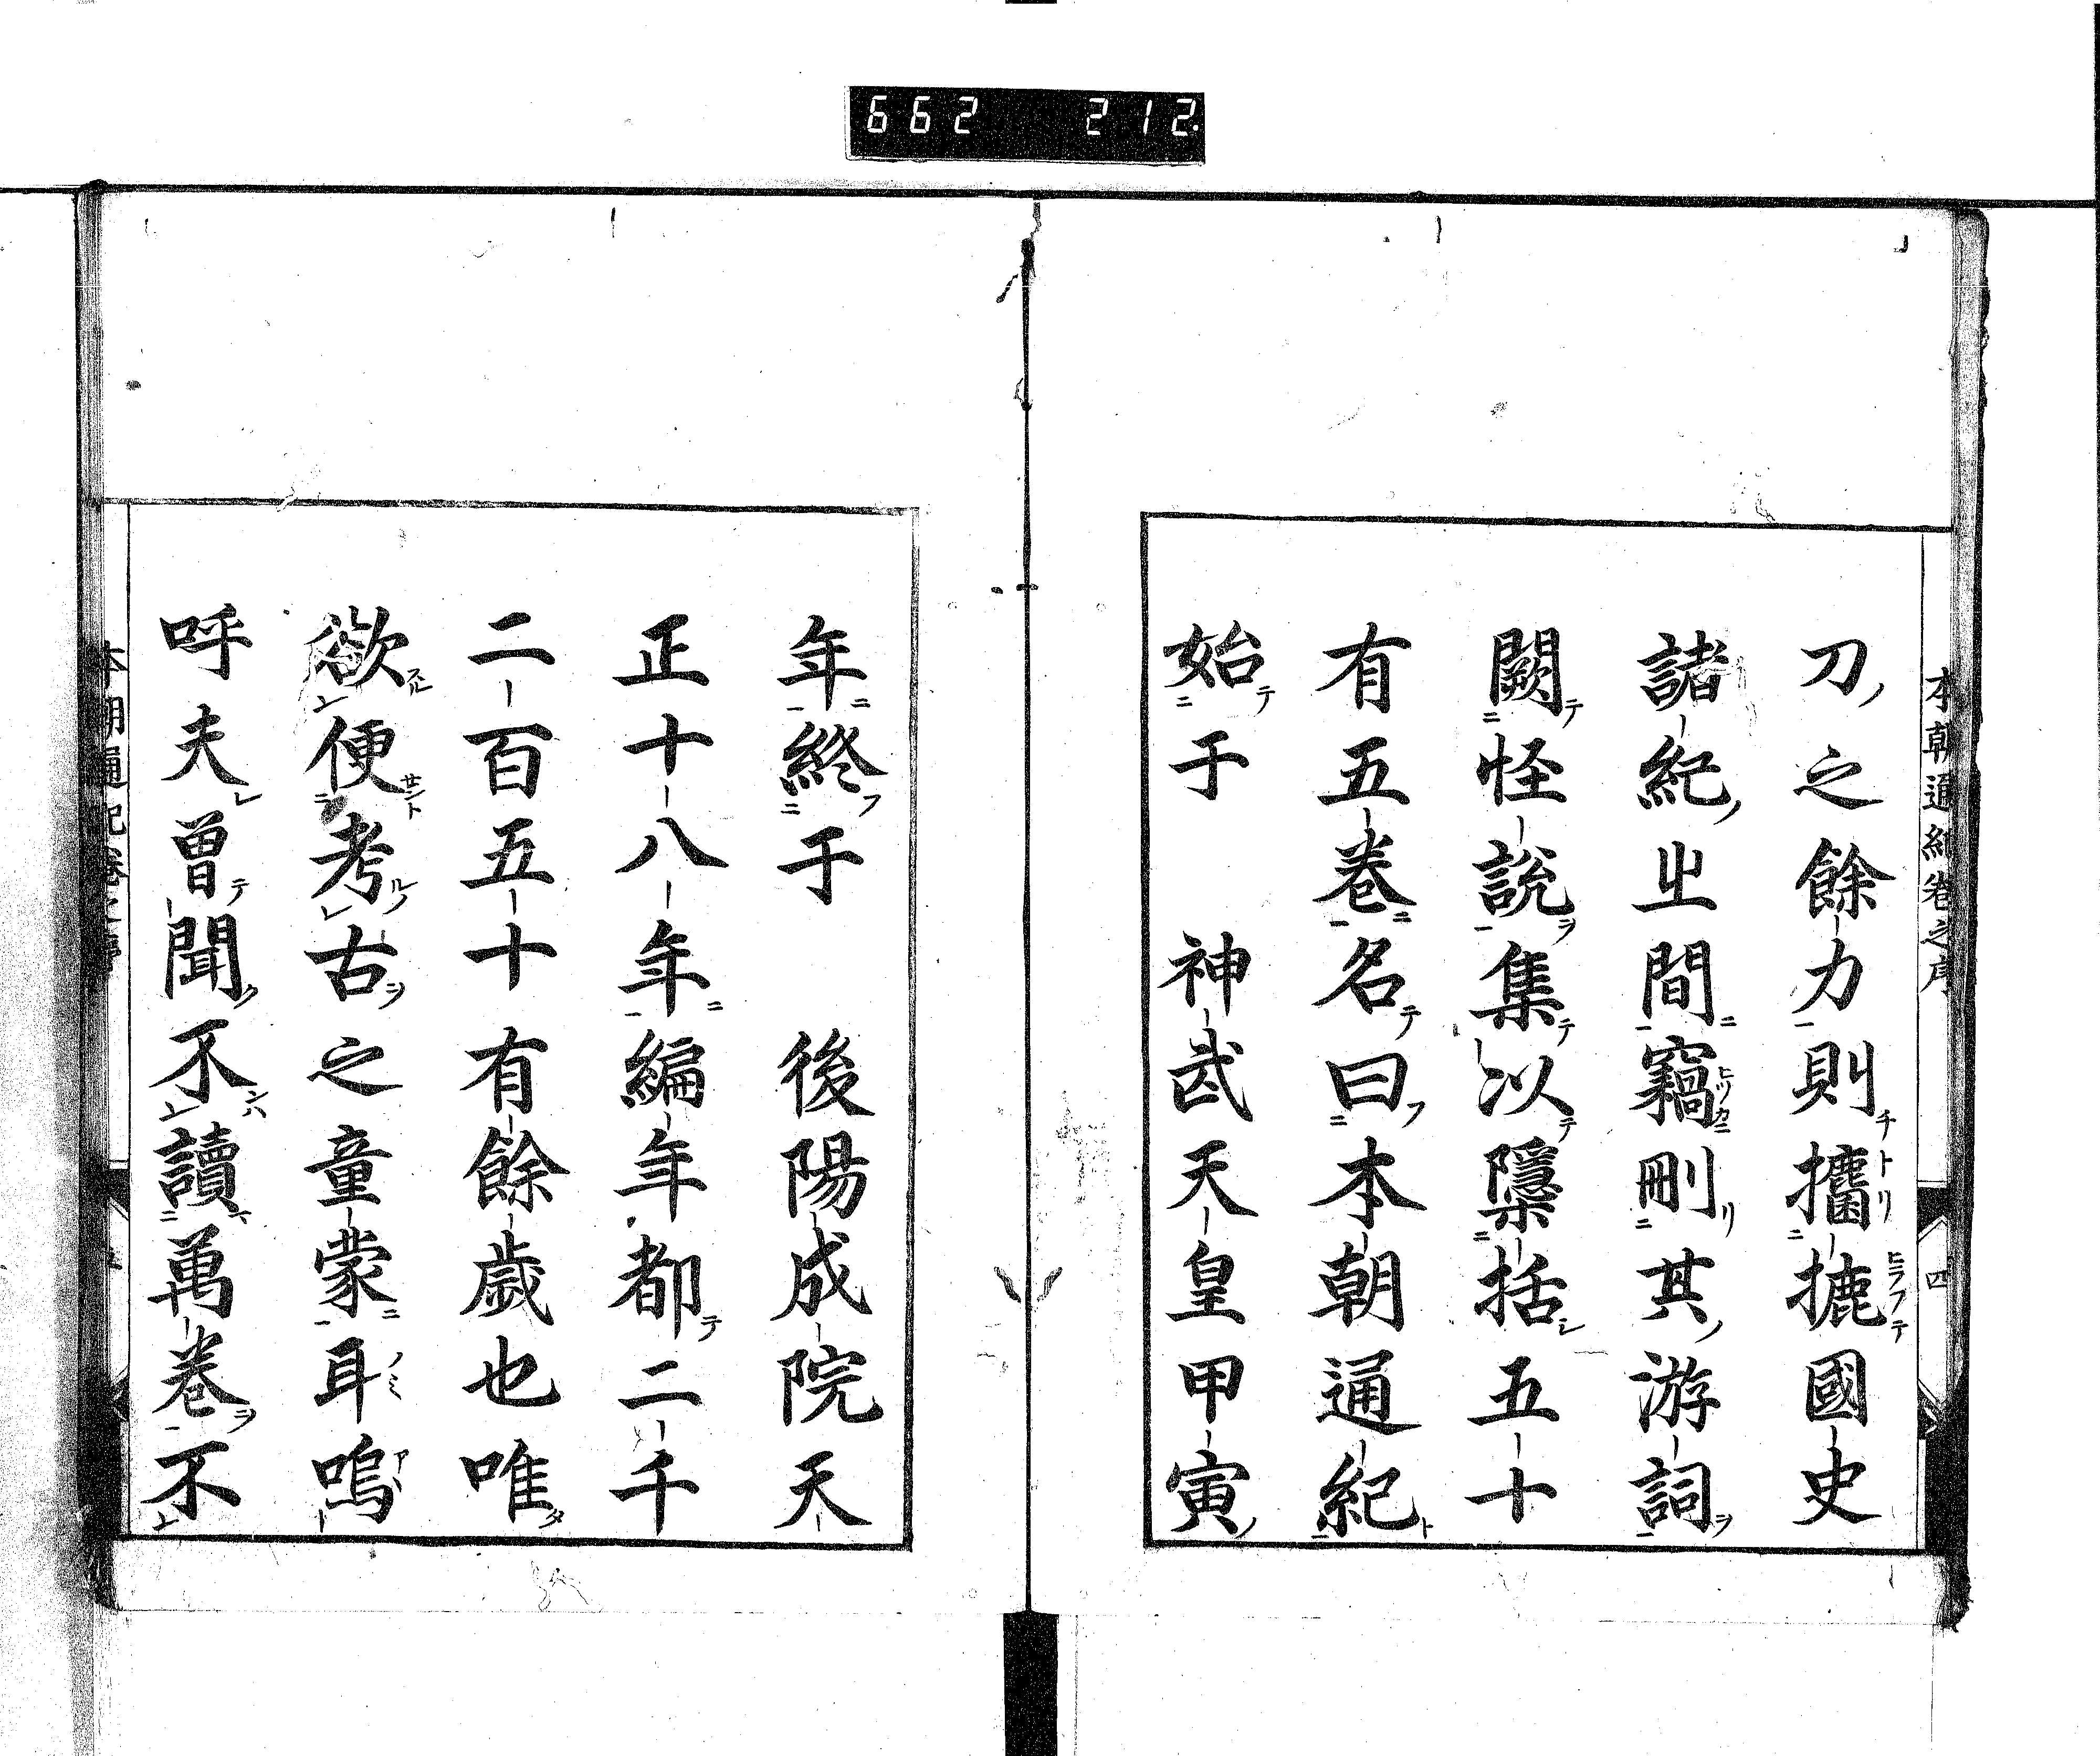 662 212
本朝通紀卷之序
四
刀之餘力則攟摭國史
諸紀㞢間竊刪其游詞
闕怪說集以隱括五十
有五卷名曰本朝通紀
始于 神武天皇甲寅
年終于 後陽成院天
正十八年編年都二千
二百五十有餘歲也唯
欲便考古之童蒙耳嗚
呼夫曾聞不讀萬卷不